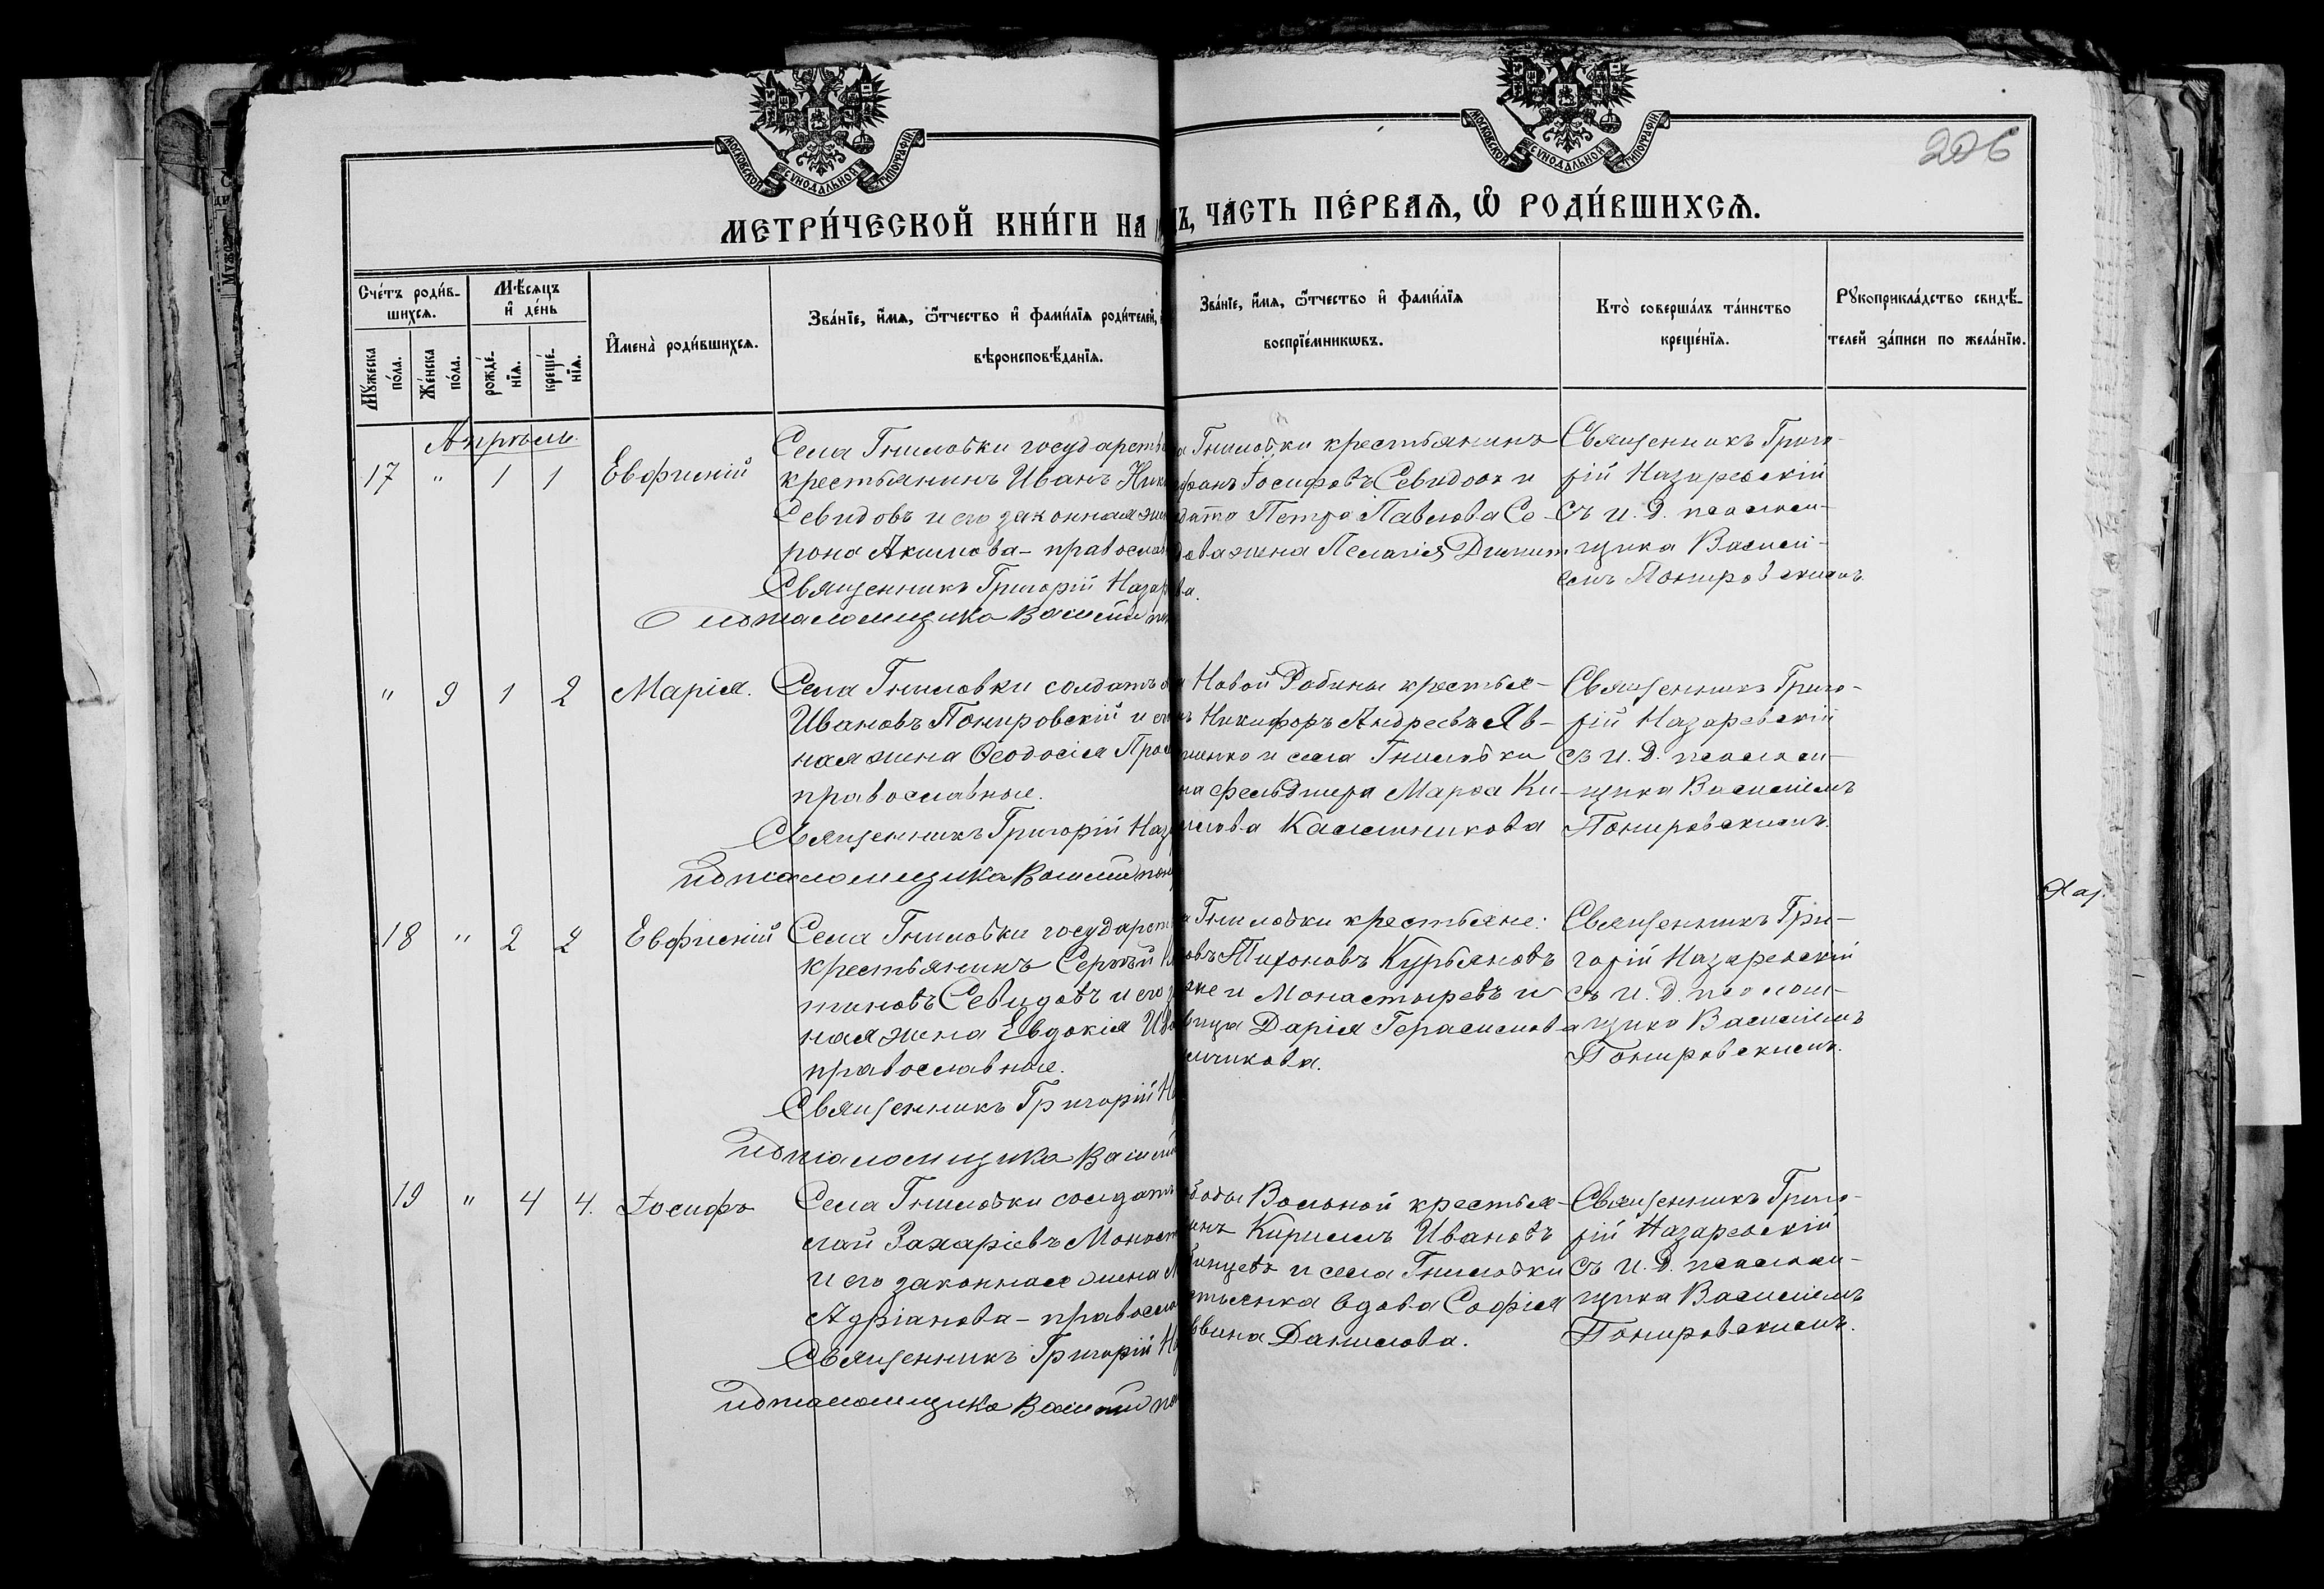 206
МОСКОВСКОЙ СѴНОДАЛЬНОЙ ТИПОГРАФІИ
МОСКОВСКОЙ СѴНОДАЛЬНОЙ ТИПОГРАФІИ
МЕТРИ́ЧЕСКОЙ КНИ́ГИ НА
Ъ, ЧА́СТЬ ПЕ́РВАѦ, Ѡ РОДИ́ВШИХСѦ.
Сче́тъ роди́в-
шихсѧ.
Мѣ́сѧцъ
и де́нь
Мꙋ́жеска по́ла.
Же́нска по́ла.
рожде́-
нїѧ.
креще́-
нїѧ.
И҆мена̀ роди́вшихсѧ.
Зва́нїе, и҆́мѧ, ѻ҆́тчество и҆ фами́лїѧ роди́телей,
вѣроисповѣ́данїѧ.
Зва́нїе, и҆́мѧ, ѻ҆́тчество и҆ фами́лїѧ
воспрїе́мникωвъ.
Кто̀ соверша́лъ та́инство
креще́нїѧ.
Рꙋкоприкла́дство свидѣ́-
телей за́писи по жела́нїю.
Апрѣль.
17 " 1 1 Евфимій
Села Гниловки государств
крестьянинъ Иванъ Ник
Севидовъ и его законная же
рона Акимова - правосла
Священникъ Григорій Назар
И д псаломщика Василій по
Гниловки крестьянинъ
фанъ Іосифовъ Севидовъ и
дата Петра Павлова Се-
дова жена Пелагія Дмит
ва.
Священникъ Григо-
рій Назаревскій
съ И. Д. псалом-
щика Василі-
емъ Понировскимъ.
" 9 1 2 Марія.
Села Гниловки солдатъ
Ивановъ Понировскій и ег
ная жена Ѳеодосія Про
православные.
Священникъ Григорій Наз
И д псаломщика Василій пон
Новой Рабины крестья-
нъ Никифоръ Андреевъ Яв-
шенко и села Гниловки
на фельдшера Марѳа Ки-
илова Калашникова
Священникъ Григо-
рій Назаревскій
съ И. Д. псалом-
щика Василіемъ
Понировскимъ.
18 " 2 2 Евфимій
Села Гниловки государст
крестьянинъ Сергѣй
тиновъ Севидовъ и его
ная жена Евдокія Ива
православные.
Священникъ Григорій На
И д псаломщика Василій
Гниловки крестьяне:
овъ Тихоновъ Курьяновъ
же и Монастыревъ и
вица Дарія Герасимова
ичикова.
Священникъ Гри-
горій Назаревскій
съ И. Д. псалом-
щика Василіемъ
Понировскимъ.
19 " 4 4. Іосифъ
Села Гниловки солдатъ
лай Захаріевъ Монаст
и его законная жена М
Адріанова - правосла
Священникъ Григорій На
И д псаломщика Василій по
ободы Вольной крестья-
инъ Кириллъ Ивановъ
бинцевъ и села Гниловки
стьянка вдова Софія
ввина Данилова.
Священникъ Григо-
рій Назаревскій
съ И. Д. псалом-
щика Василіемъ
Понировскимъ.